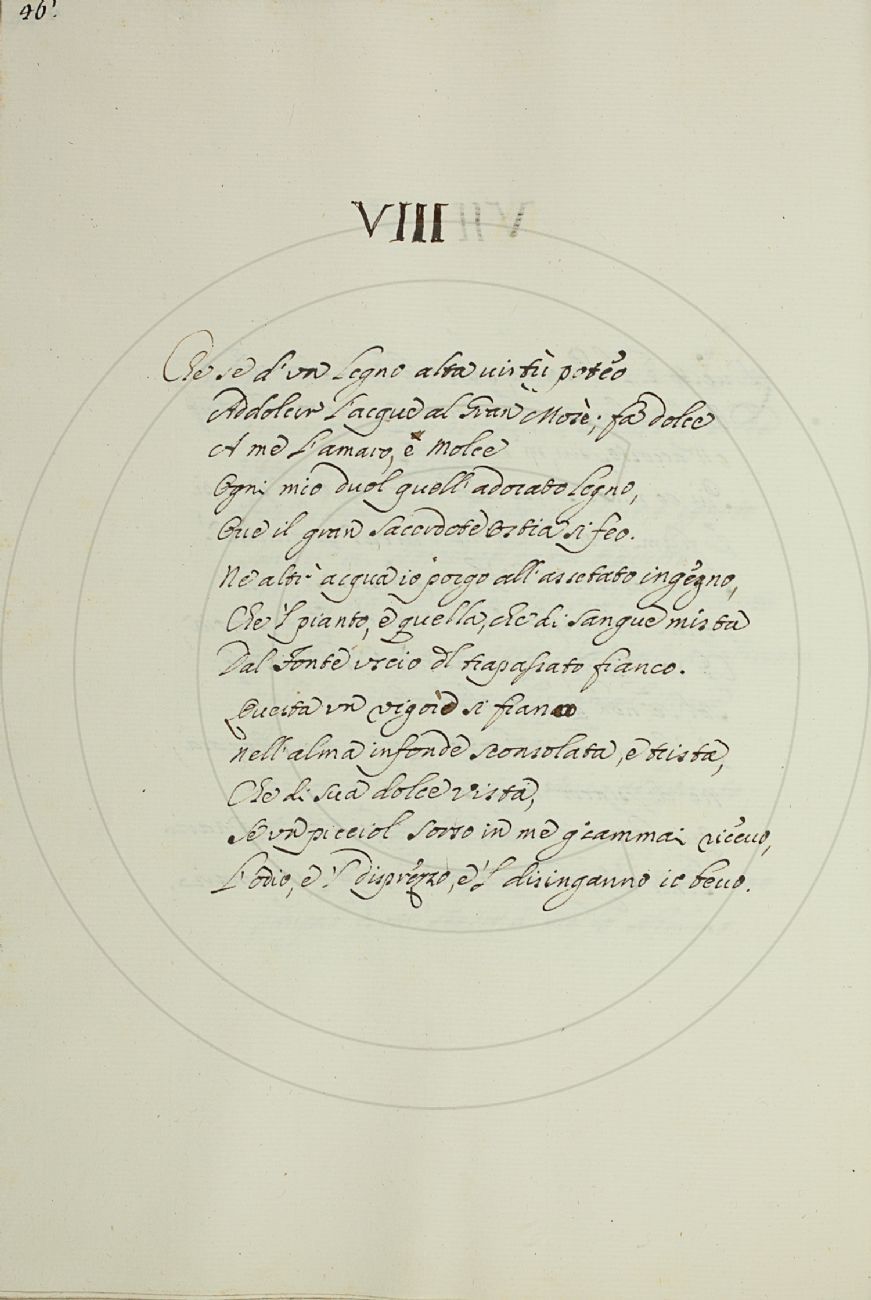 46.
VIII
Che se d'vn Legno alta uirtù potéo
Addolcir L'acque al Gran Mosè; fà dolce
A me L'amaro, è Molce
Ogni mio duol quell'adorato Legno,
Oue il gran Sacerdote Ostia si feo.
Nè altr'acqua io porgo all'assetato ingégno,
Che 'L pianto, è quella, che di Sangue mista
Dal Fonte vscio dl trapassato fianco.
Questa vn vigorè sì franco
Nell'alma infonde sconsolata, è trista,
Che di sua dolce vista,
Se vn picciol Sorso in me g'iammai ricéuo,
L'Odio, è 'L disprézzo, è 'L disinganno io beuo.